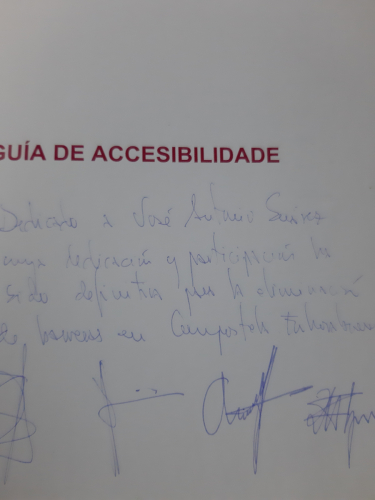 GUÍA DE ACCESIBILIDADE
Dedicado a José Antonio Suárez
cuya dedicación y participación ha
sido definitiva para la eliminación
de barreras en Compostela